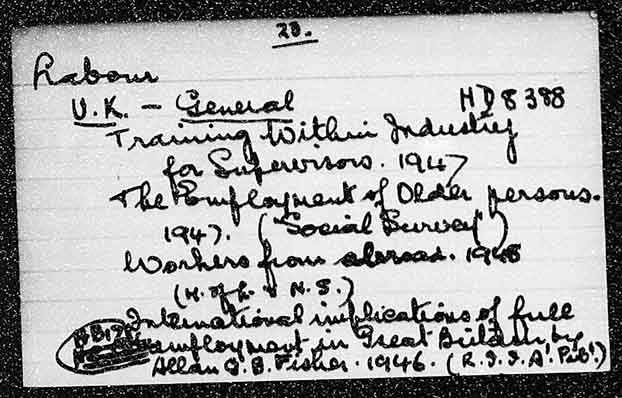 23.
Labour
U.K. - General HD8388
Training Within Industry
for Supervisors. 1947
The Employment of Older persons.
1947. ("Social Survey")
Workers from abroad. 1948
(M. of L. & N.S.)
International implications of full
employment in Great Britain, by
Allan G.B. Fisher. 1946. (R.I.I.A! Pub!)